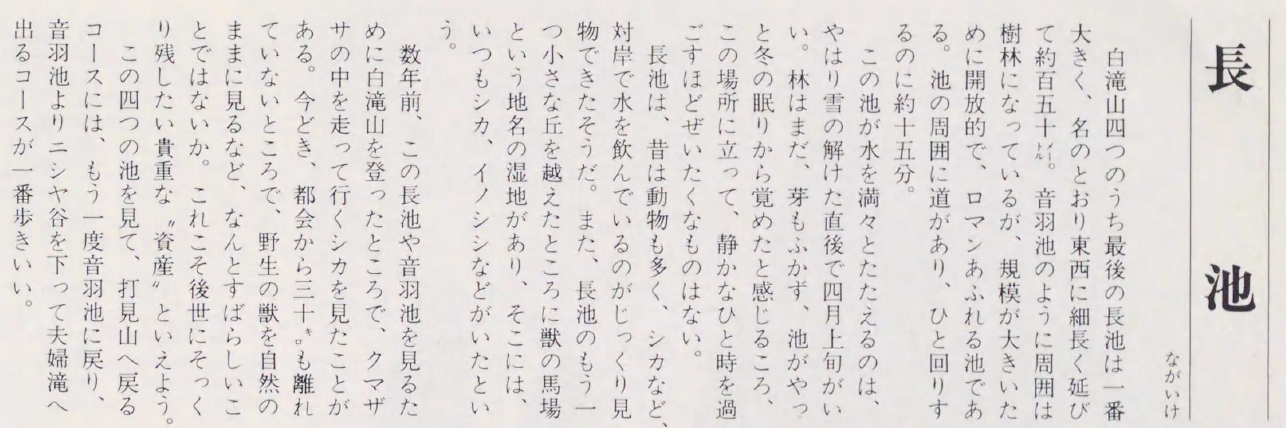 長池
ながいけ
白滝山四つのうち最後の長池は一番
大きく、名のとおり東西に細長く延び
て約百五十㍍。音羽池のように周囲は
樹林になっているが、規模が大きいた
めに開放的で、ロマンあふれる池であ
る。池の周囲に道があり、ひと回りす
るのに約十五分。
この池が水を満々とたたえるのは、
やはり雪の解けた直後で四月上旬がい
い。林はまだ、芽もふかず、池がやっ
と冬の眠りから覚めたと感じるころ、
この場所に立って、静かなひと時を過
ごすほどぜいたくなものはない。
長池は、昔は動物も多く、シカなど、
対岸で水を飲んでいるのがじっくり見
物できたそうだ。また、長池のもう一
つ小さな丘を越えたところに獣の馬場
という地名の湿地があり、そこには、
いつもシカ、イノシシなどがいたとい
う。
数年前、この長池や音羽池を見るた
めに白滝山を登ったところで、クマザ
サの中を走って行くシカを見たことが
ある。今どき、都会から三十㌔も離れ
ていないところで、野生の獣を自然の
ままに見るなど、なんとすばらしいこ
とではないか。これこそ後世にそっく
り残したい貴重な〝資産〟といえよう。
この四つの池を見て、打見山へ戻る
コースには、もう一度音羽池に戻り、
音羽池よりニシヤ谷を下って夫婦滝へ
出るコースが一番歩きいい。